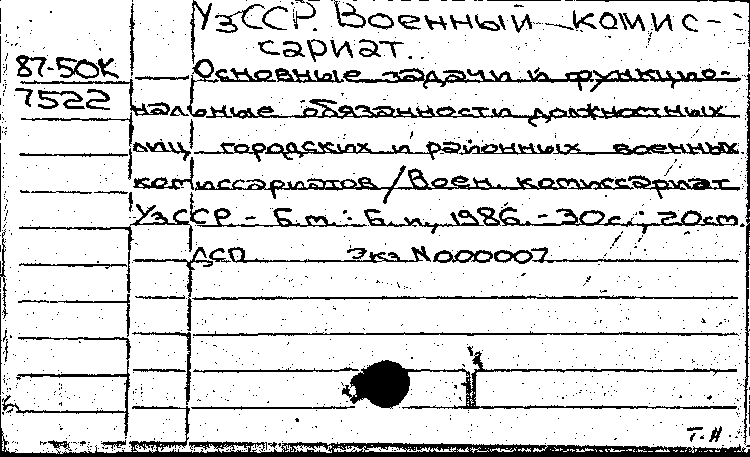 УзССР. Военный комис-
сариат.
87-50К
7522
Основные задачи и функцио-
нальные обязанности должностных
лиц городских и районных военных
комиссариатов / Воен. комиссариат
УзССР. - Б.м. : Б. и., 1986. - 30с. ; 20см.
ДСП Экз N000007
Т.Н